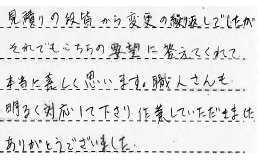 見積りの段階から変更の繰返しでしたが
それでもこちらの要望に答えてくれて
本当に嬉しく思います。職人さんも
明るく対応して下さり作業していただきました
ありがとうございました。